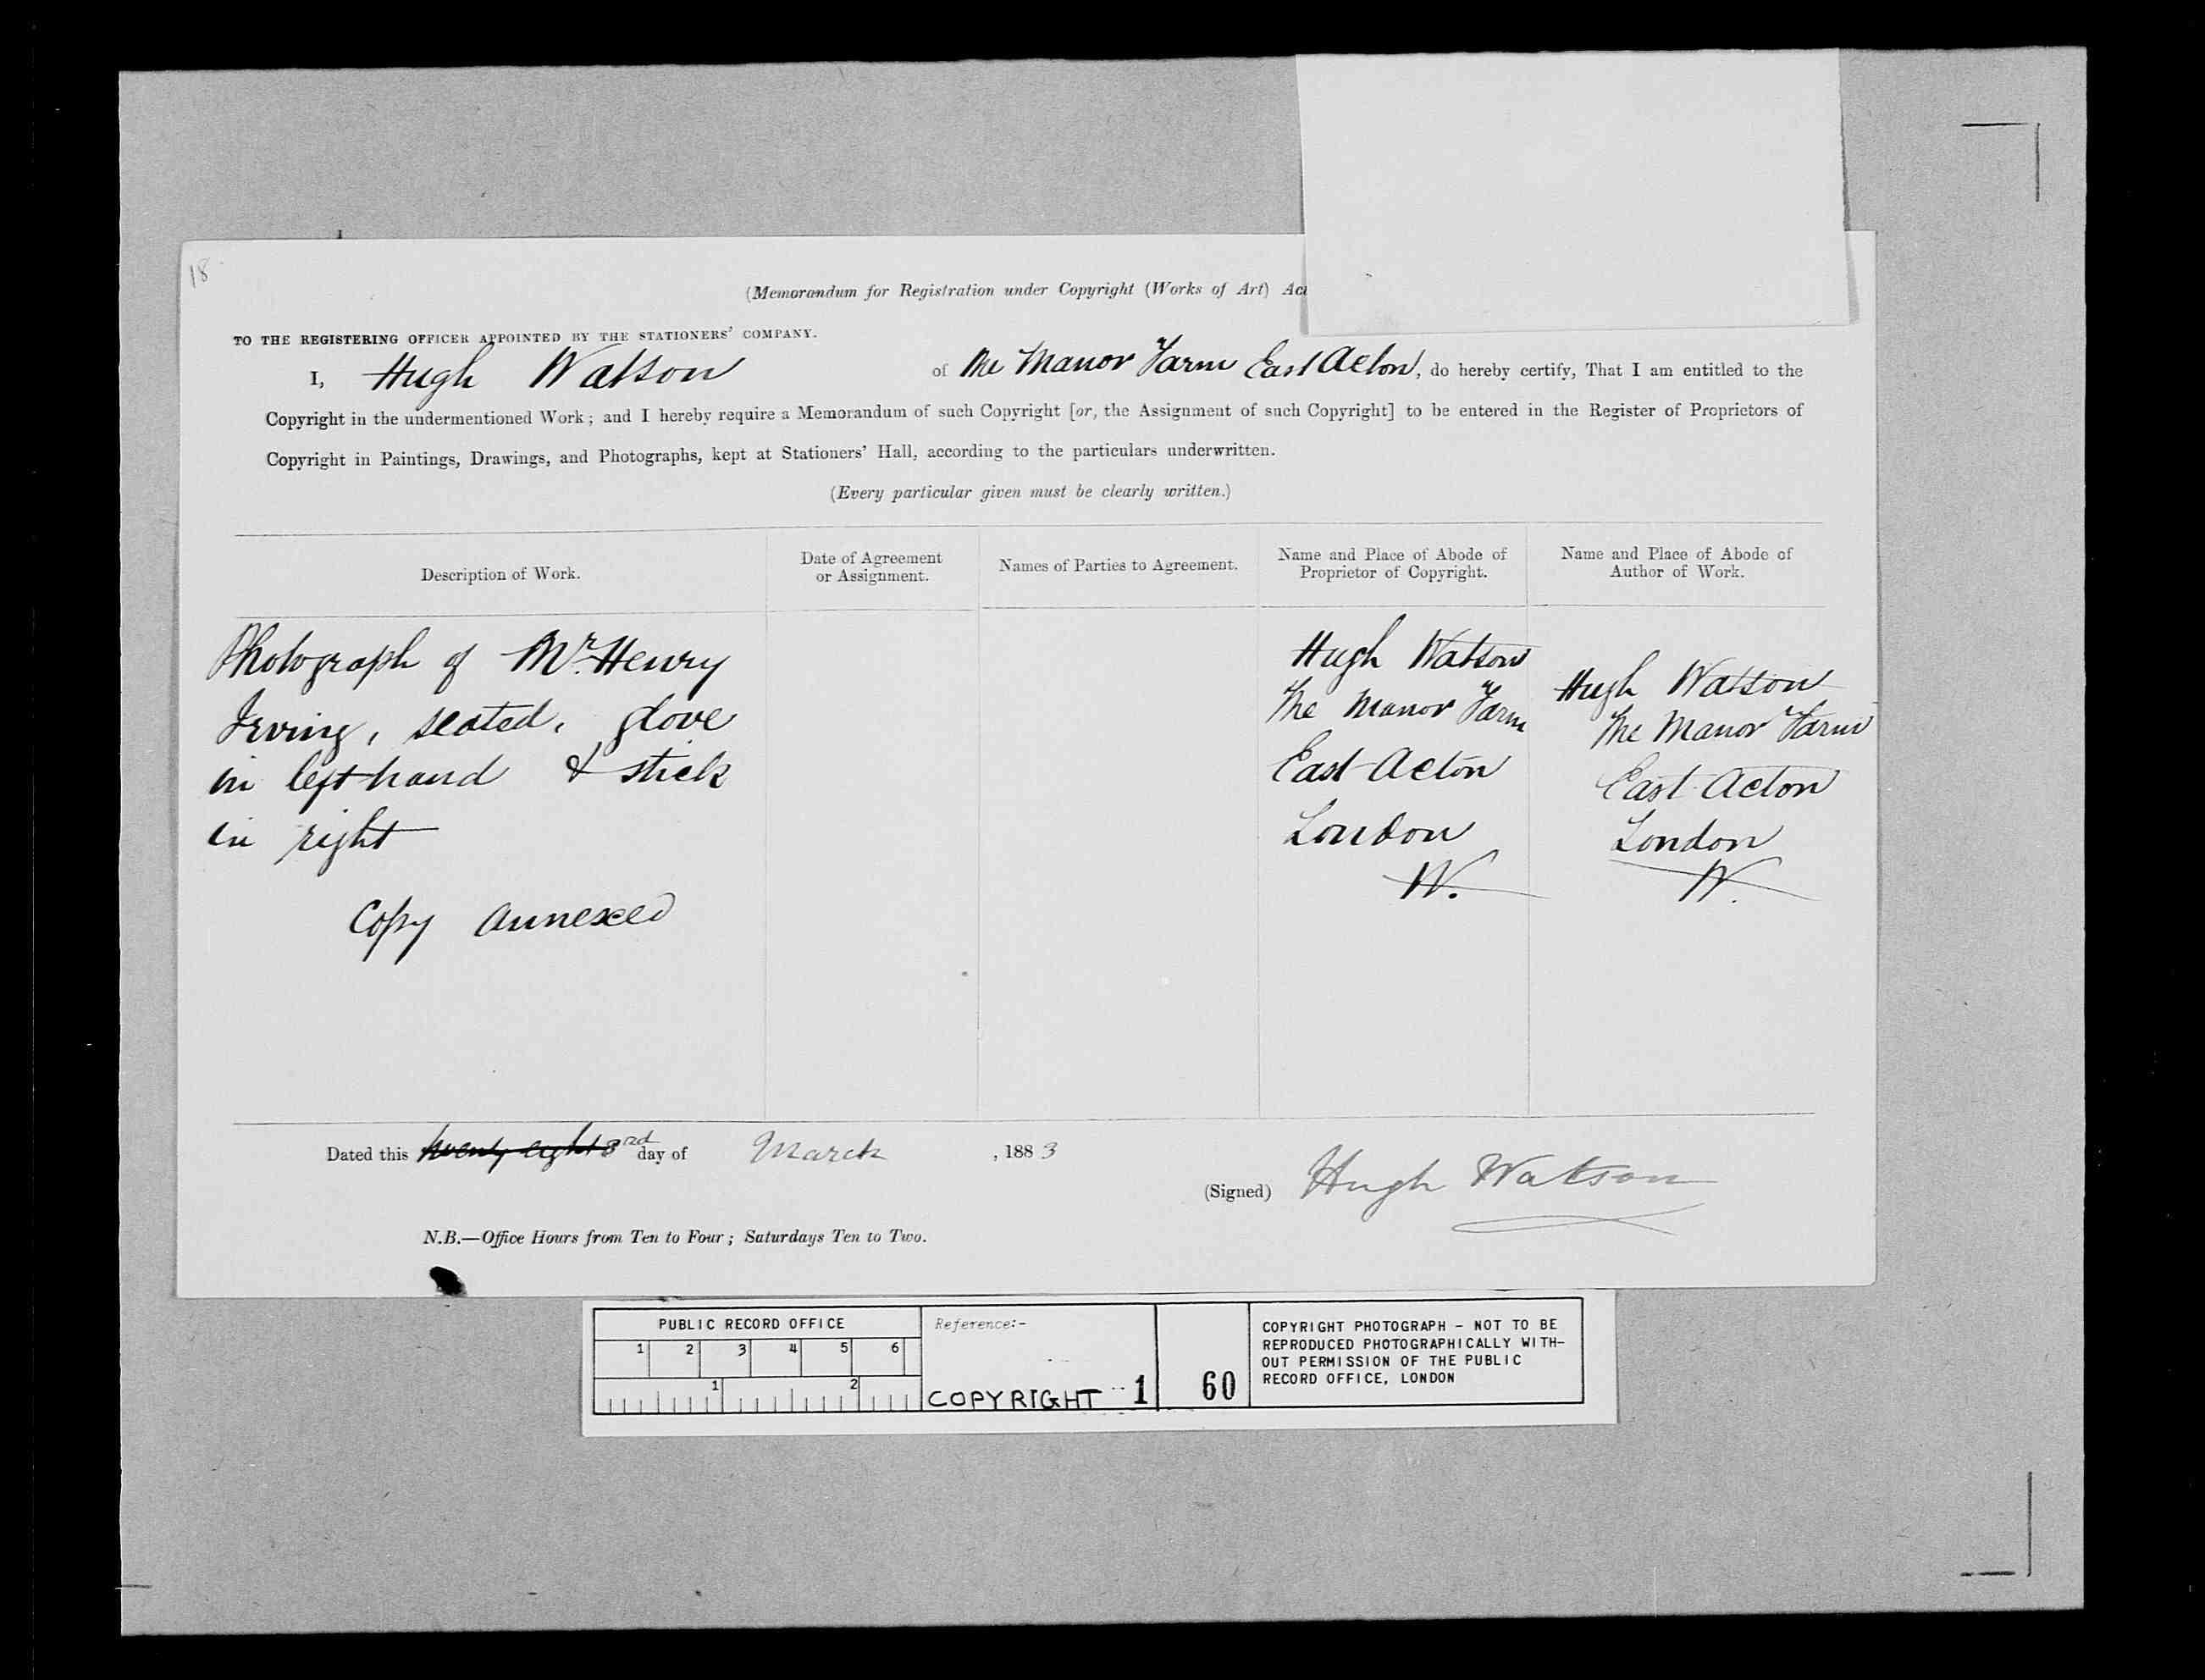 18
(Memorandum for Registration under Copyright (Works of Art) Act
TO THE REGISTERING OFFICER APPOINTED BY THE STATIONERS' COMPANY.
I, Hugh Watson of The Manor Farm East Acton, do hereby certify, That I am entitled to the
Copyright in the undermentioned Work; and I hereby require a Memorandum of such Copyright [or, the Assignment of such Copyright] to be entered in the Register of Proprietors of
Copyright in Paintings, Drawings, and Photographs, kept at Stationers' Hall, according to the particulars underwritten.
(Every particular given must be clearly written.)
Description of Work.
Date of Agreement
or Assignment.
Names of Parties to Agreement.
Name and Place of Abode of
Proprietor of Copyright.
Name and Place of Abode of
Author of Work.
Photograph of Mr. Henry
Irving, seated, glove
in left hand & stick
in right
Copy annexed
Hugh Watson
The Manor Farm
East Acton
London
W.
Hugh Watson
The Manor Farm
East Acton
London
W.
Dated this twenty eight 3rd day of March, 1883
(Signed) Hugh Watson
N.B.—Office Hours from Ten to Four; Saturdays Ten to Two.
PUBLIC RECORD OFFICE
1 2 3 4 5 6
1 2
Reference:-
COPYRIGHT 1
60
COPYRIGHT PHOTOGRAPH - NOT TO BE
REPRODUCED PHOTOGRAPHICALLY WITH-
OUT PERMISSION OF THE PUBLIC
RECORD OFFICE, LONDON